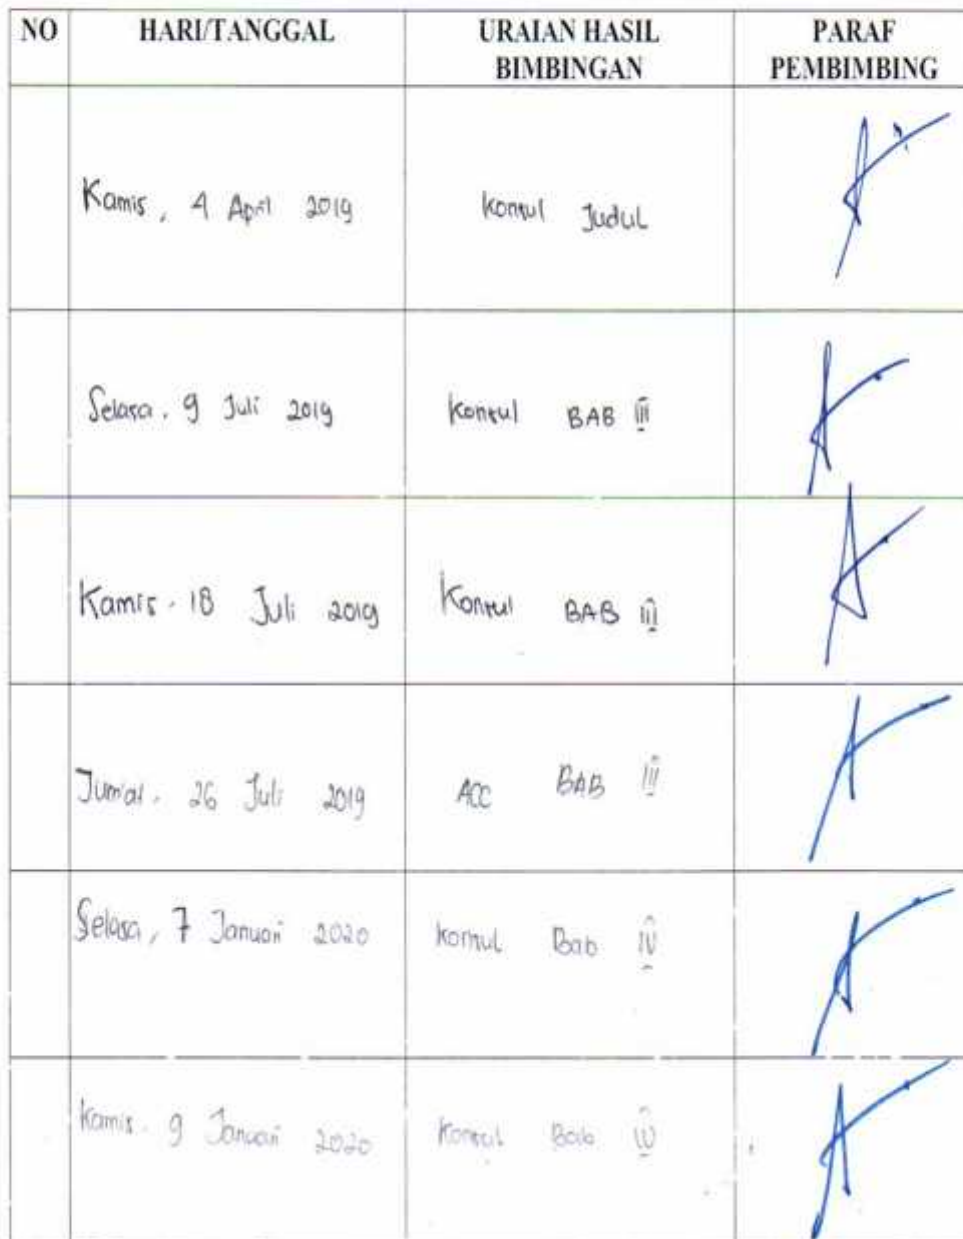 NO HARI/TANGGAL URAIAN HASIL BIMBINGAN PARAF PEMBIMBING
Kamis, 4 April 2019 Konsul Judul
Selasa, 9 Juli 2019 Konsul BAB III
Kamis, 18 Juli 2019 Konsul BAB III
Jum'at, 26 Juli 2019 ACC BAB III
Selasa, 7 Januari 2020 Konsul Bab IV
Kamis, 9 Januari 2020 Konsul Bab IV